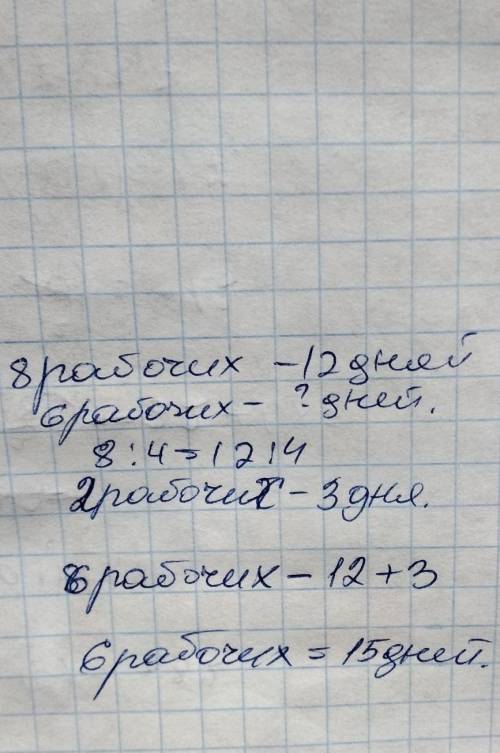 8 рабочих - 12 дней
6 рабочих - ? дней.
8 : 4 = 12 : 4
2 рабочих - 3 дня.
6 рабочих - 12 + 3
6 рабочих = 15 дней.